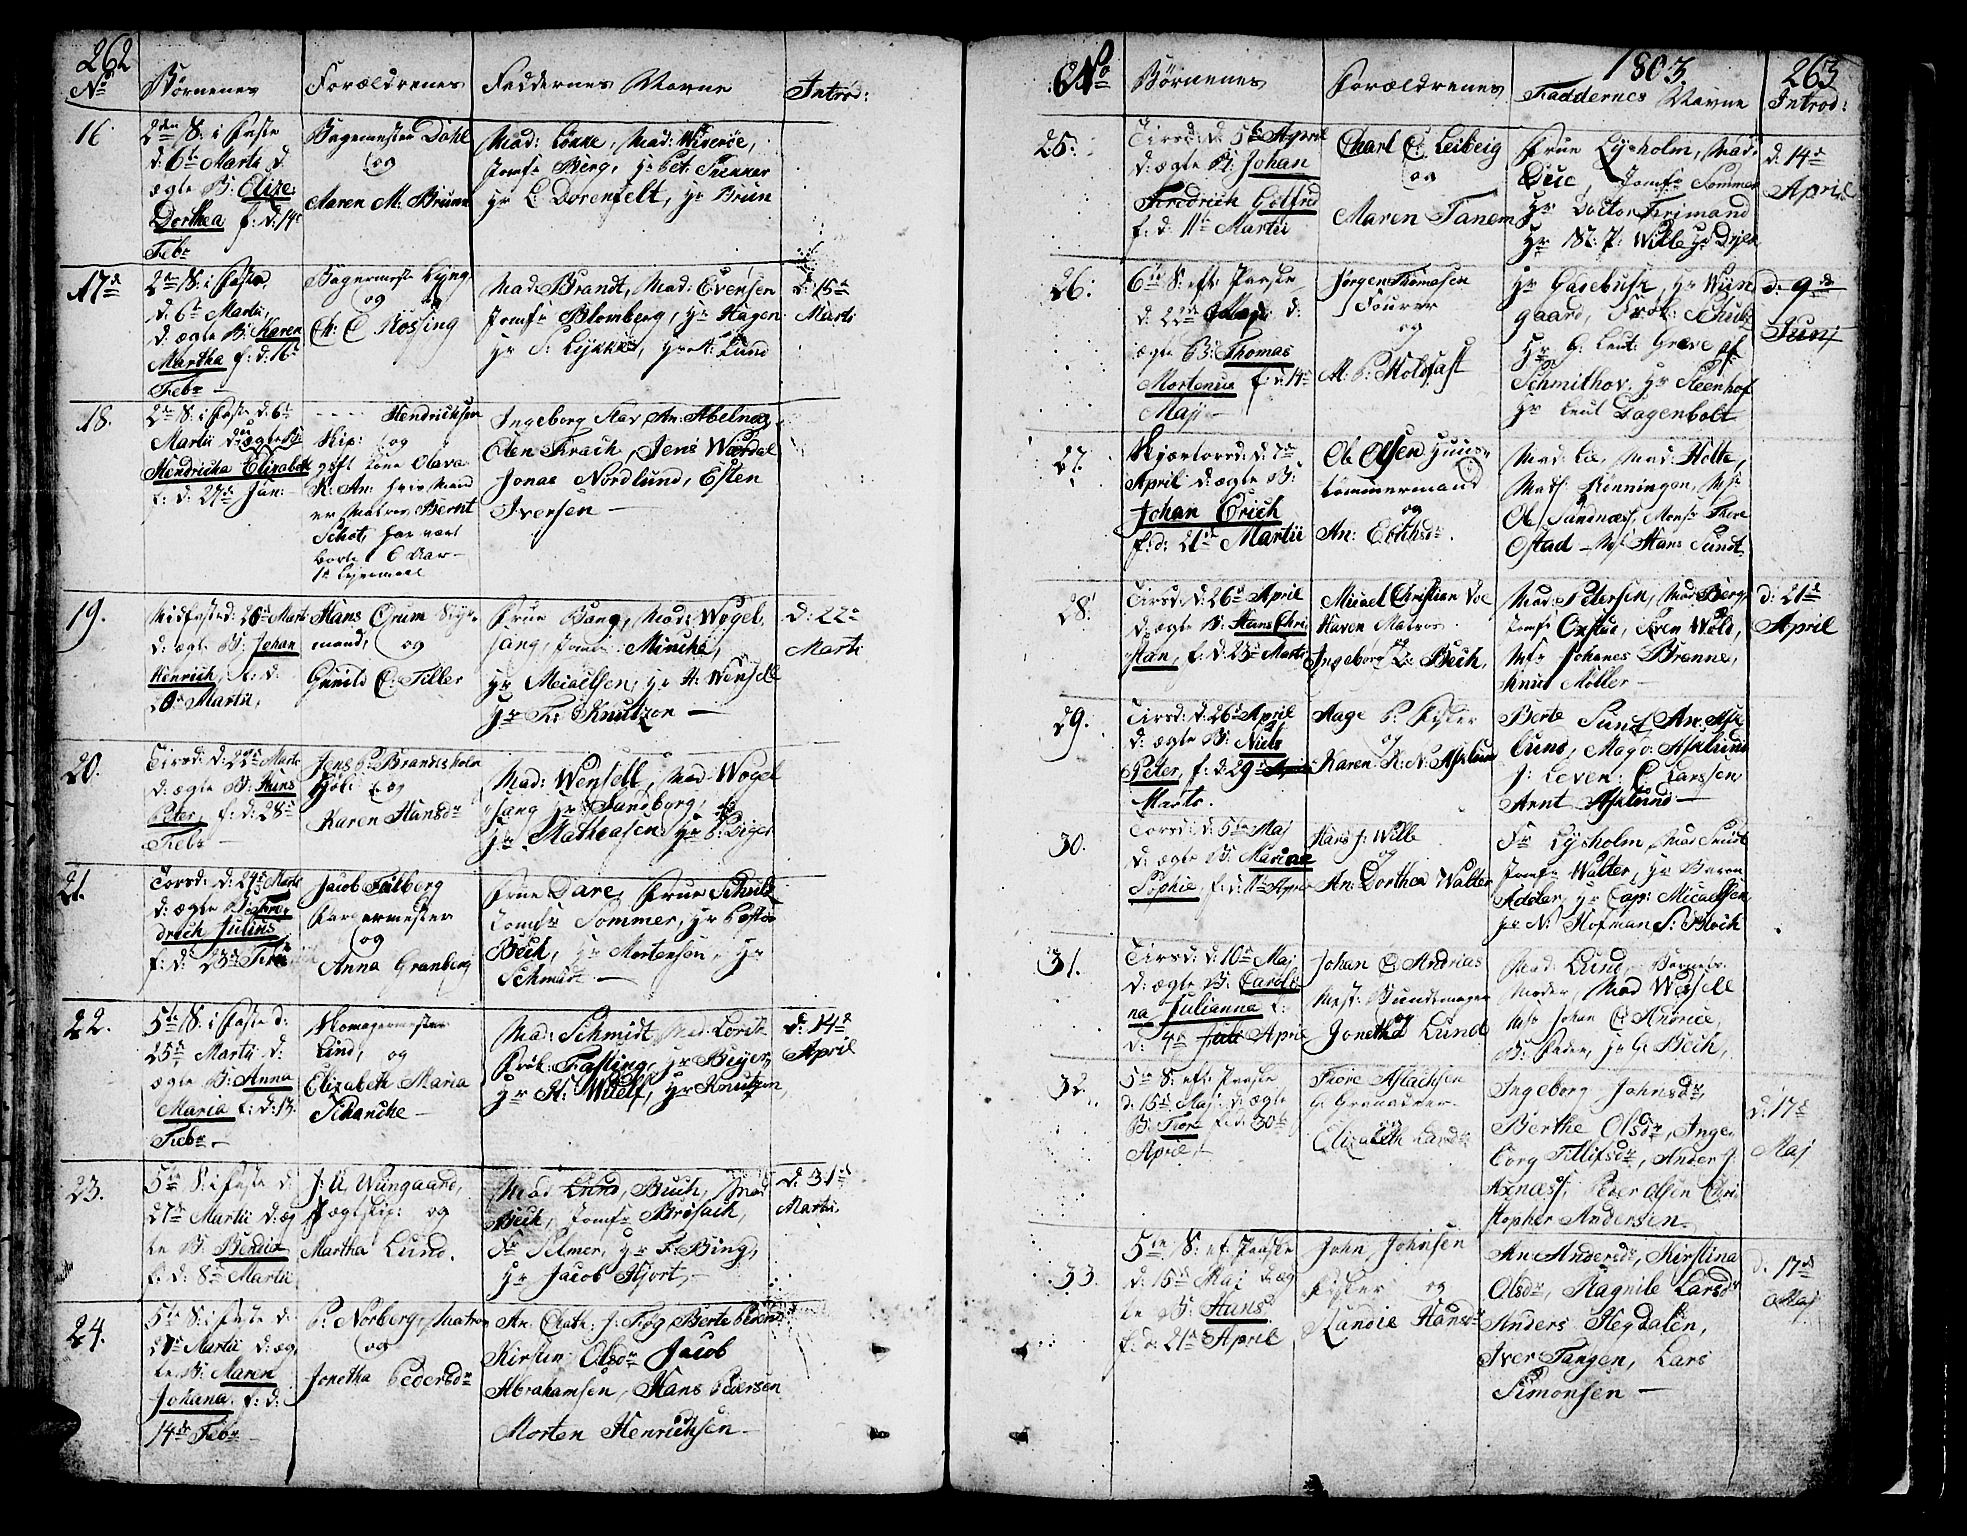 262
No Børnenes Forældrenes Faddernes Navne Introd:
16 2den S: i Faste
d: 6te Martii d:
ægte B: Elize
Dorthea f: d: 14de
Febr
Bagermester Dahl
og
Maren M: Bruun
Mad: Løkke, Mad: Wiserøe,
Jomfr Berg, Hr Pet: Trekker
Hr C Dorenfelt, Hr Brun
17d 2den S: i Faste
d: 6te Martii,
d: ægte B: Karen
Martha f: d: 16
Febr
Bagermester Lyng
og
Ch: C Køssing
Mad Brandt, Mad: Evensen
Jomfr Blomberg, Hr Hagen
Hr S: Lykke, Hr A: Lund
d: 15de
Marti
18. 2den S: i Faste d: 6te
Martii d: uægte B:
Hendricha Elisabeth
f: d: 27de Jan:
---- Hendrichsen
Skip: og
gift Kone Olava
K: An: hvis Mand
er Matros Bernt
Schot, har vært
borte 6 Aar
1te Leiermaal
Ingeborg Star, An: Abelnæs
Olen Krach, Jens Wærdal
Jonas Nordlund, Esten
Iversen
19. Midfaste d: 20de Marti
d: ægte B: Johan
Henrich, f: d:
20de Martii,
Hans Orum Sig-
mand, og
Gunild C: Tiller
Frue Bang, Mad: Wogel
sang, Jomfr: Minche,
Hr Meiaelsen, Hr H: Wensell
Hr Fr: Knutzon
d: 22de
Marti
20. Tirsd: d: 22de Marti
d: ægte B: Hans
Peter, f: d: 28de
Febr
Jens P: Brandtsholm
og
Karen Hansdr
Mad: Wensell, Mad: Wogel
sang Hr Sandborg,
Hr Mathiasen Hr P: Biger
21. Torsd: d: 24de Marti
d: ægte B: Fre
drich Julius
f: d: 23de Febr
Jacob Falberg
Farvermester
og
Anna Granberg
Frue Dare, Frue Schult
Jomfr Sommer, Hr Pastor
Bech, Hr Mortensen, Hr
Schmidt
22. 5te S: i Faste d:
25de Martii d:
ægte B: Anna
Maria f: d: 13.
Febr
Skomagermester
Lind, og
Elizabeth Maria
Schanche
Mad: Schmidt, Mad: Lorck
Frøk: Fasting, Hr Beyer
Hr H: Wulf, Hr Knutzon
d: 14de
April
23. 5te S: i Faste d:
27de Martii d: æg
te B: Bendix
f: d: 8de Martii
J: U: Wungaard,
Skip: og
Martha Lund.
Mad Lund, Buch, Mad
Bech, Jomfr Brosach,
Fr Selmer, Hr F: Bing,
Hr Jacob Hjort,
d: 31de
Martii
24. 5te S: i Faste d:
27de Martii d: æg
te B: Maren
Johana f: d:
14de Febr
P: Norberg, Matros
og
Jonetha Pedersdr
An: Cath: J: Fløg, Berte Pedersdr
Kirsten Olsdr Jacob
Abrahamsen, Hans Pedersen
Morten Henrichsen
1803. 263
No Børnenes Forældrenes Faddernes Navne Introd:
25: Tirsd: d: 5te April
d: ægte B: Johan
Fredrich Gotfrid
f: d: 11te Martii
Charl C: Leibeig
og
Maren Tanem
Frue Lysholm, Mad:
Due, Jomfr Sommer
Hr Doctor Frimand
Hr P: Wille Hr Dyck
d: 14de
April
26: 6te S: eft: Paaske
d: 22de Maji d:
ægte B: Thomas
Mortenus f: d: 14de
Maji
Jørgen Thomasen
Fourer
og
M: P: Holdfast
Hr Gadebusk, Hr Wun
gaard, Frøk: Schultz
Hr P: Leut: Greve af
Schmithov, Hr Steenhof
Hr Leut Dagenbolt
d. 9de
Junj
27: Skjærtorsd: d: 7de
April d: ægte B:
Johan Erich
f: d: 21de Martii
Ole Olsen Huus-
tømmermand
og
An: Erichsdr.
Mad: Lie, Mad: Holte,
Mad: Rønningen, Msr
Ole Sundnæss, Monsr Thore
Østad - Msr Hans Sundt
28: Tirsd: d: 26de April
d: ægte B: Hans Chri
stian, f: d: 23de Marti
Micael Christian Voe
Haven Matros
og
Ingeborg L: Bech,
Mad Petersen, Mad Berg,
Jomfr Oxstad, Sven Wold,
Msr Johanes Brønne,
Knut Møller
d: 21de
April
29. Tirsd: d: 26de April
d: ægte B: Niels
Peter, f: d: 29de April
Marts.
Aage P: Fisker
og
Karen K: N: Aslund
Berte Sund, An: Asp
lund, Mago: Asplund
J: Leven: C: Larssen
Arnt Asplund
30. Torsd: d: 5te Maj
d: ægte B: Marine
Sophie, f: d: 11te April
Hans J: Wille
og
An: Dorthea Walter
Fr Lysholm, Mad Sundt
Jomfr Walter, Hr Baron
Adeler, Hr Cap: Micaelsen,
Hr N: Hofman S: Bloch
31. Tirsd: d: 10de Maj
d: ægte B: Caroli
na Julianna f:
d: 4de Febr April
Johan C: Andrias
Mest: Bundtmager
og
Jonetha Lund
Mad: Lund, Barnets
Moder, Mad Wessell
Msr Johan C: Andrice,
B: Fader, Hr C: Bech,
32. 5te S: eft: Paaske
d: 15de Maj: d: ægte
B: Tore f: d: 30te
April,
Tore Aslachsen
G: Granaderer
Elizabeth Larsdr
Ingeborg Johnsdr,
Berthe Olsdr, Inge-
borg Tillifsdr, Ander J
Axnæss, Peder Olsen Chri
stopher Andersen.
d: 17de
Maj
33. 5te S: ef: Paaske
d: 15de Maj d: æg
te B: Hans
f: d: 21de April
John Johnsen
Fisker og
Randie Hansdr
An: Andersdr, Kirstina
Olsdr, Ragnild Larsdr
Anders Hegdalen,
Iver Tangen, Lars
Simonsen
d. 17de
Maj